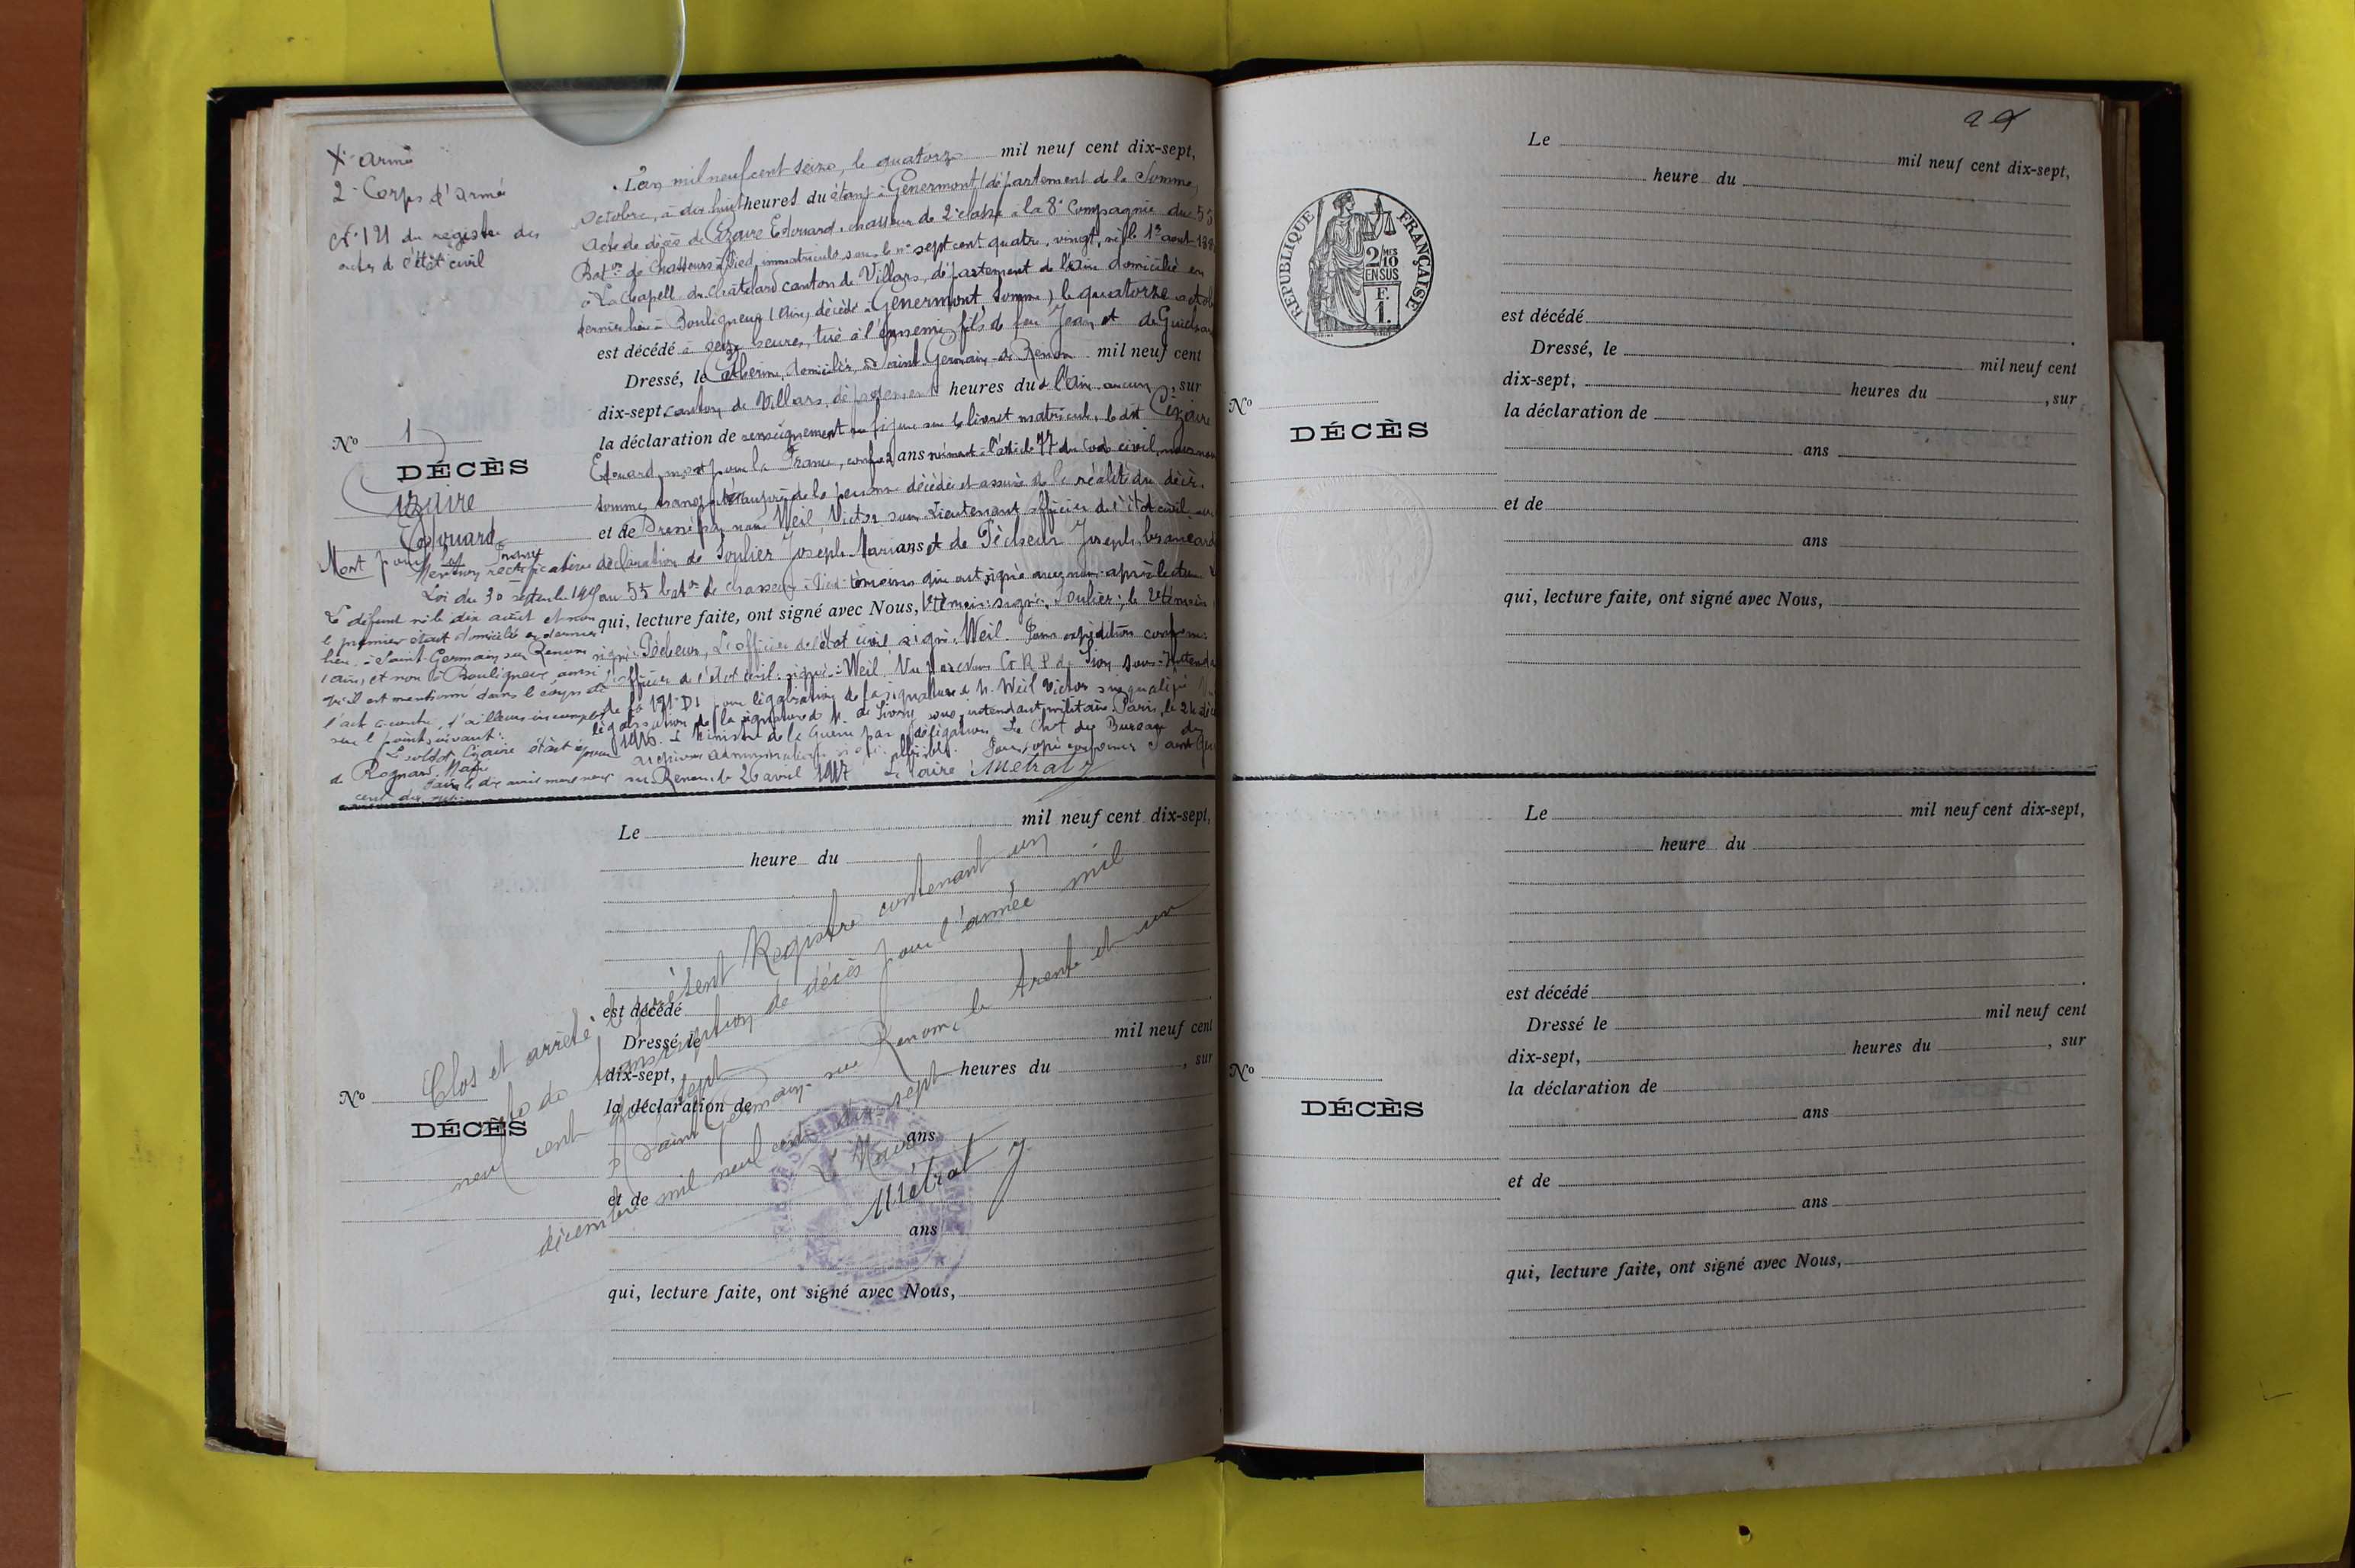 Xe armée
2e Corps d'armée
N° 121 du registre des
actes de l'état civil
N° 1
DÉCÈS
Cizaire
Edouard
Mort pour la France
Mention rectificative
Loi du 30 septembre 1915
Le défunt né le dix août et non
le premier était domicilié en dernier
lieu à Saint Germain sur Renom
(Ain) et non à Bouligneux ainsi
qu'il est mentionné dans le corps de
l'acte ci-contre, d'ailleurs incomplet
sur le point suivant:
Le soldat Cizaire était époux
de Rognard, Marie
L'an mil neuf cent seize, le quatorze mil neuf cent dix-sept,
octobre, à dix huit heures du étant à Génermont (département de la Somme)
Acte de décès de Cizaire Edouard, chasseur de 2e classe à la 8e Compagnie du 55
Baton de Chasseurs à Pied, immatriculé sous le n° sept cent quatre vingt, né le 1er août
à La Chapelle du Châtelard canton de Villars, département de l'Ain domicilié en
dernier lieu à Bouligneux (Ain), décédé à Génermont (Somme) le quatorze
est décédé à seize heures, tué à l'ennemi, fils de feu Jean et de
Dressé, le Catherine, domiciliés à Saint Germain-de-Renom mil neuf cent
dix-sept canton de Villars, département heures du de l'Ain aucun , sur
la déclaration de renseignement ne figure sur le livret matricule, le dit Cizaire
Edouard, mort pour la France, ans à l'article 77 du Code civil, nous nous
somme transporté auprès de la personne décédée et assuré de la réalité du décès.
et de Dressé par nous Weil, Victor sous Lieutenant officier de l'état civil
déclaration de Soulier Joseph Marians et de Pêcheur Joseph, brancard
au 55 baton de chasseurs à Pied témoins qui ont signé avec nous après lecture
qui, lecture faite, ont signé avec Nous, 1er témoin: signé: Soulier; le 2e témoin
signé: Pêcheur, L'officier de l'état civil signé: Weil. Pour expédition conforme
l'officier de l'état civil signé: Weil. Vu par
pour légalisation de la signature de M. Weil Victor susqualifié
légalisation de la signature de M. de sous-intendant militaire. Paris, le 24
1916. Le Ministre de la Guerre par délégation Le Chef du Bureau des
archives administratives signé: illisible. Pour copie conforme Saint
sur Renom le 26 avril 1917 Le Maire Métrat
Le mil neuf cent dix-sept,
heure du
est décédé
Dressé le mil neuf cent
dix-sept, heures du , sur
N°
la déclaration de
DÉCÈS
ans
et de
ans
qui, lecture faite, ont signé avec Nous,
Clos et arrêté le présent Registre contenant un
acte de transcription de décès pour l'année mil
neuf cent dix sept
à Saint Germain-sur Renom, le trente et un
décembre mil neuf cent dix sept
Le Maire
Métrat
RÉPUBLIQUE FRANÇAISE
2/10
MES
EN SUS
F.
1.
Le mil neuf cent dix-sept,
heure du
est décédé
Dressé, le mil neuf cent
dix-sept, heures du , sur
N°
la déclaration de
DÉCÈS
ans
et de
ans
qui, lecture faite, ont signé avec Nous,
Le mil neuf cent dix-sept,
heure du
est décédé
Dressé le mil neuf cent
dix-sept, heures du , sur
N°
la déclaration de
DÉCÈS
ans
et de
ans
qui, lecture faite, ont signé avec Nous,